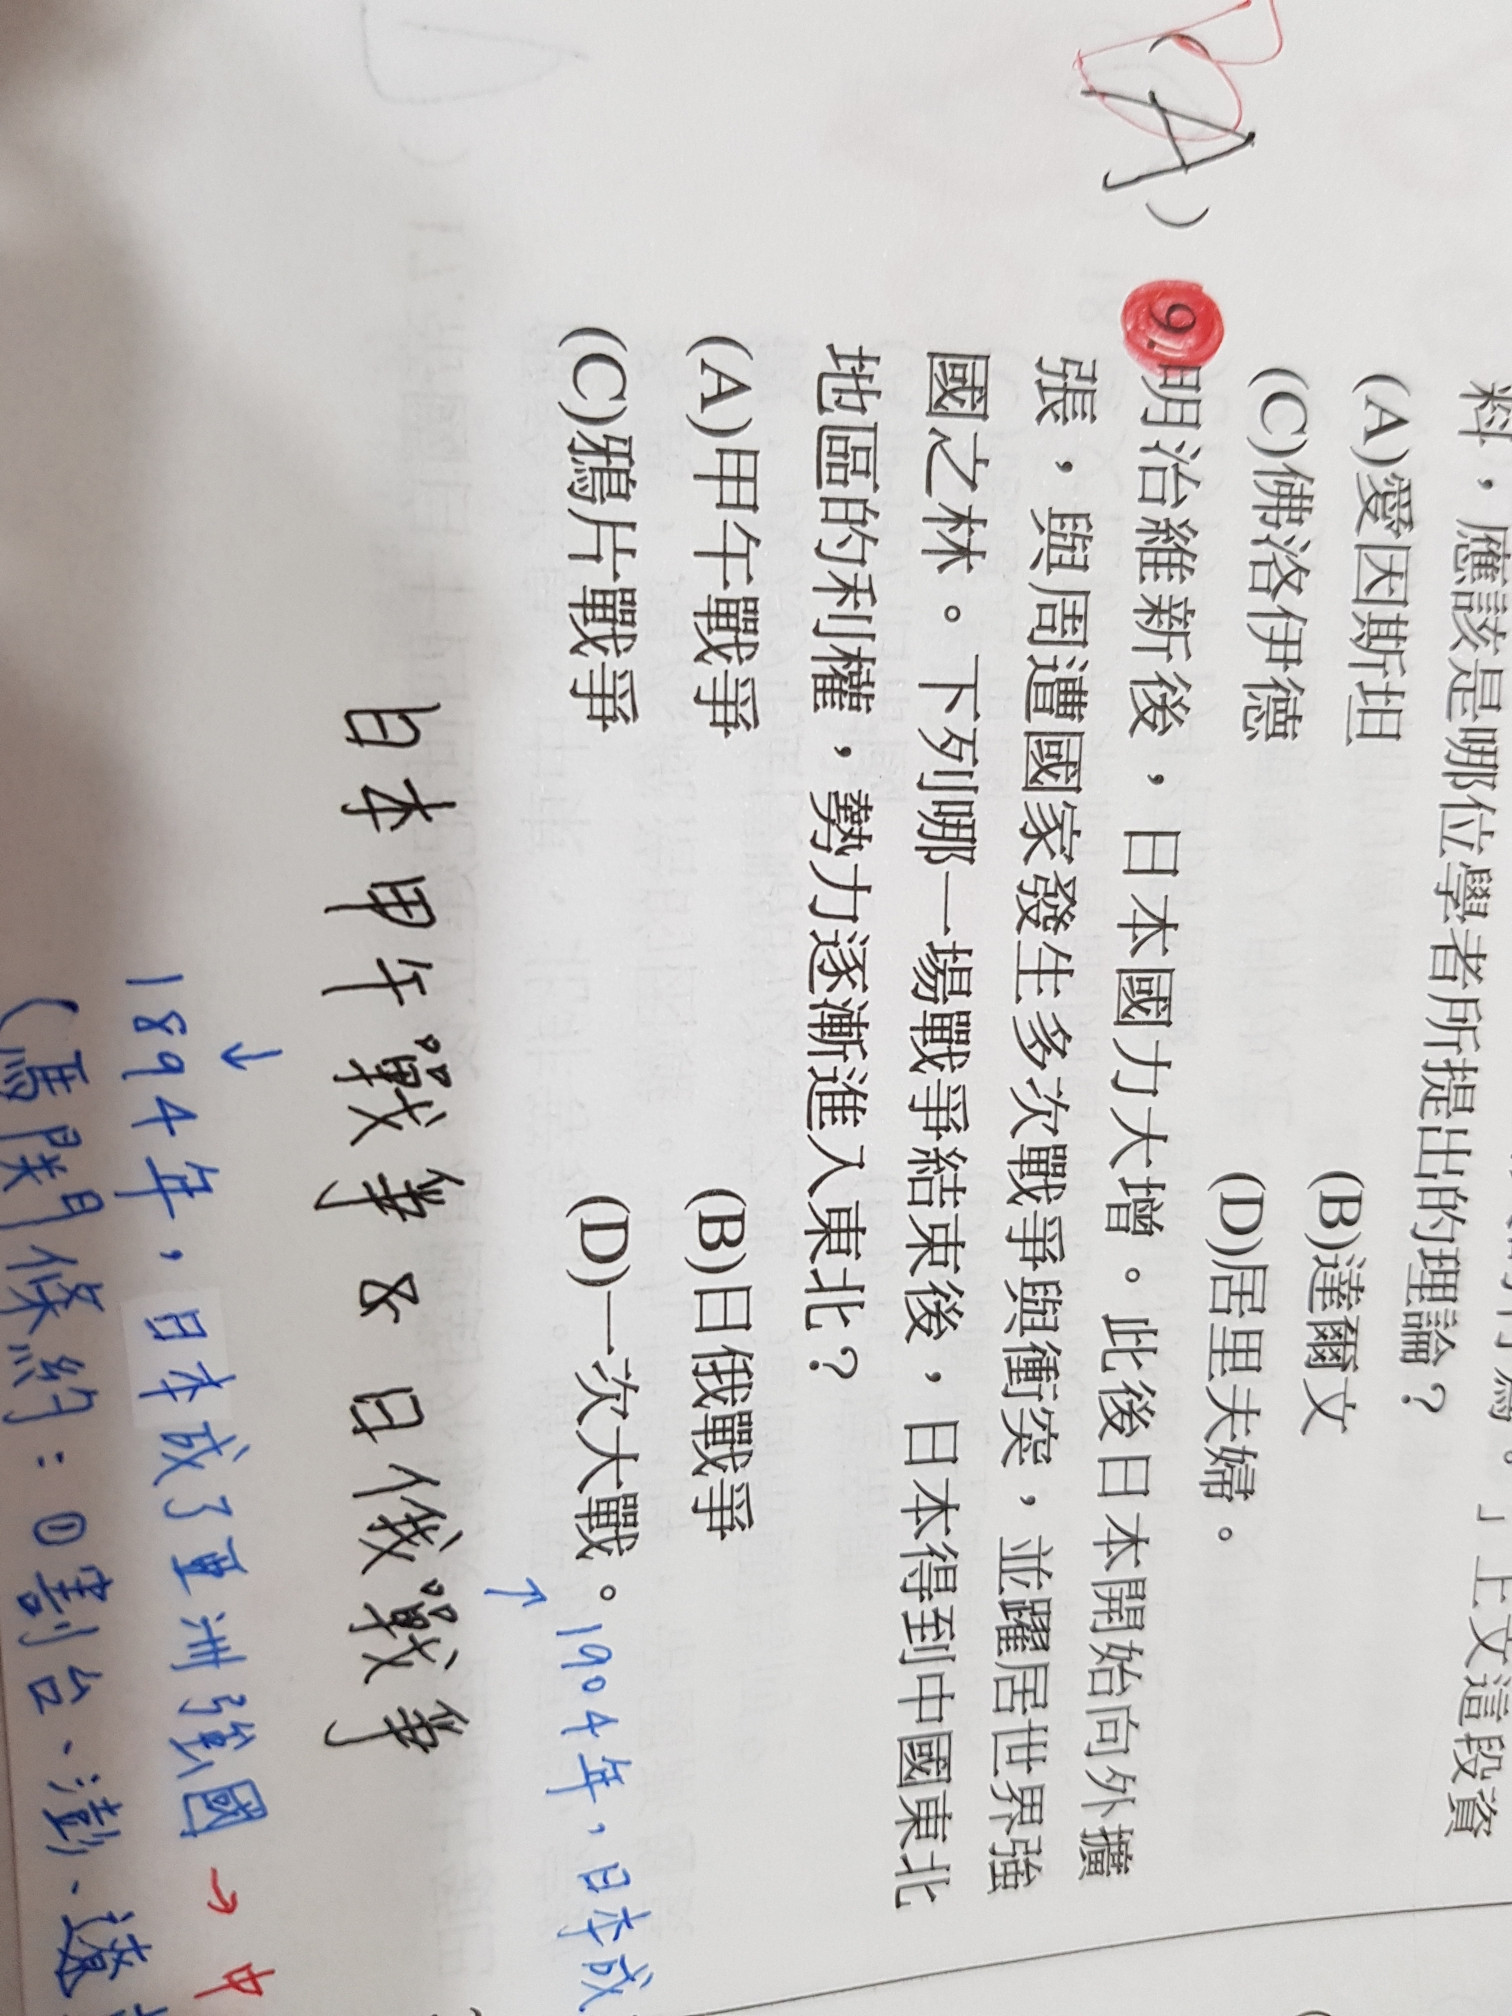 料，應該是哪位學者所提出的理論？
(A)愛因斯坦 (B)達爾文
(C)佛洛伊德 (D)居里夫婦。
BA) 9.明治維新後，日本國力大增。此後日本開始向外擴
張，與周遭國家發生多次戰爭與衝突，並躍居世界強
國之林。下列哪一場戰爭結束後，日本得到中國東北
地區的利權，勢力逐漸進入東北？
(A)甲午戰爭 (B)日俄戰爭
(C)鴉片戰爭 (D)一次大戰。
↑ 1904年，日本成
日本甲午戰爭 & 日俄戰爭
↓
1894年，日本成了亞洲強國 → 中
(馬關條約：①割台、澎、遼